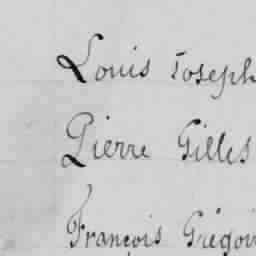 Louis Joseph
Pierre Gilles
François Grégoi